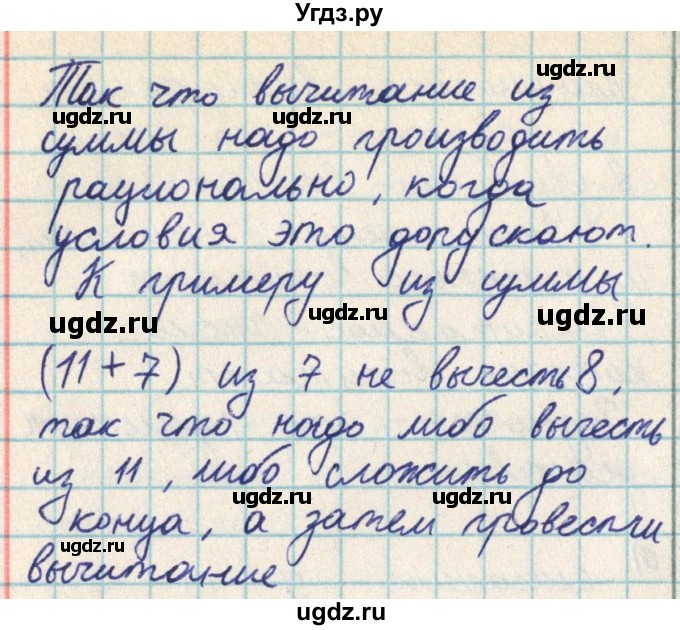 Угдз.ру
Так что вычитание из
ugdz.ru ugdz.ru
суммы надо производить
рационально, когда
ugdz.ru ugdz.ru
условия это допускают.
К примеру из суммы
ugdz.ru ugdz.ru ugdz.ru
(11+7) из 7 не вычесть 8,
так что надо либо вычесть
из 11, либо сложить до
ugdz.ru ugdz.ru
конца, а затем провести
ugdz.ru ugdz.ru
вычитание
ugdz.ru